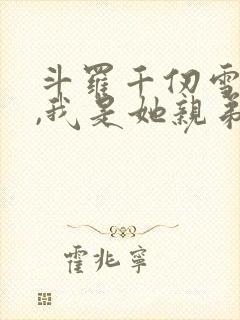 斗羅千仞雪
,我是她親弟
霍兆寧